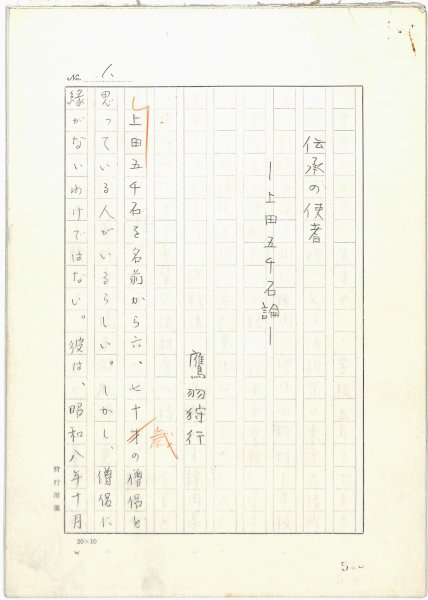 No. 1.
伝承の使者
―上田五千石論―
鷹羽狩行
上田五千石を名前から六、七十才の僧侶と
歳
思っている人がいるらしい。しかし、僧侶に
縁がないわけではない。彼は、昭和八年十月
狩行用箋
20×10